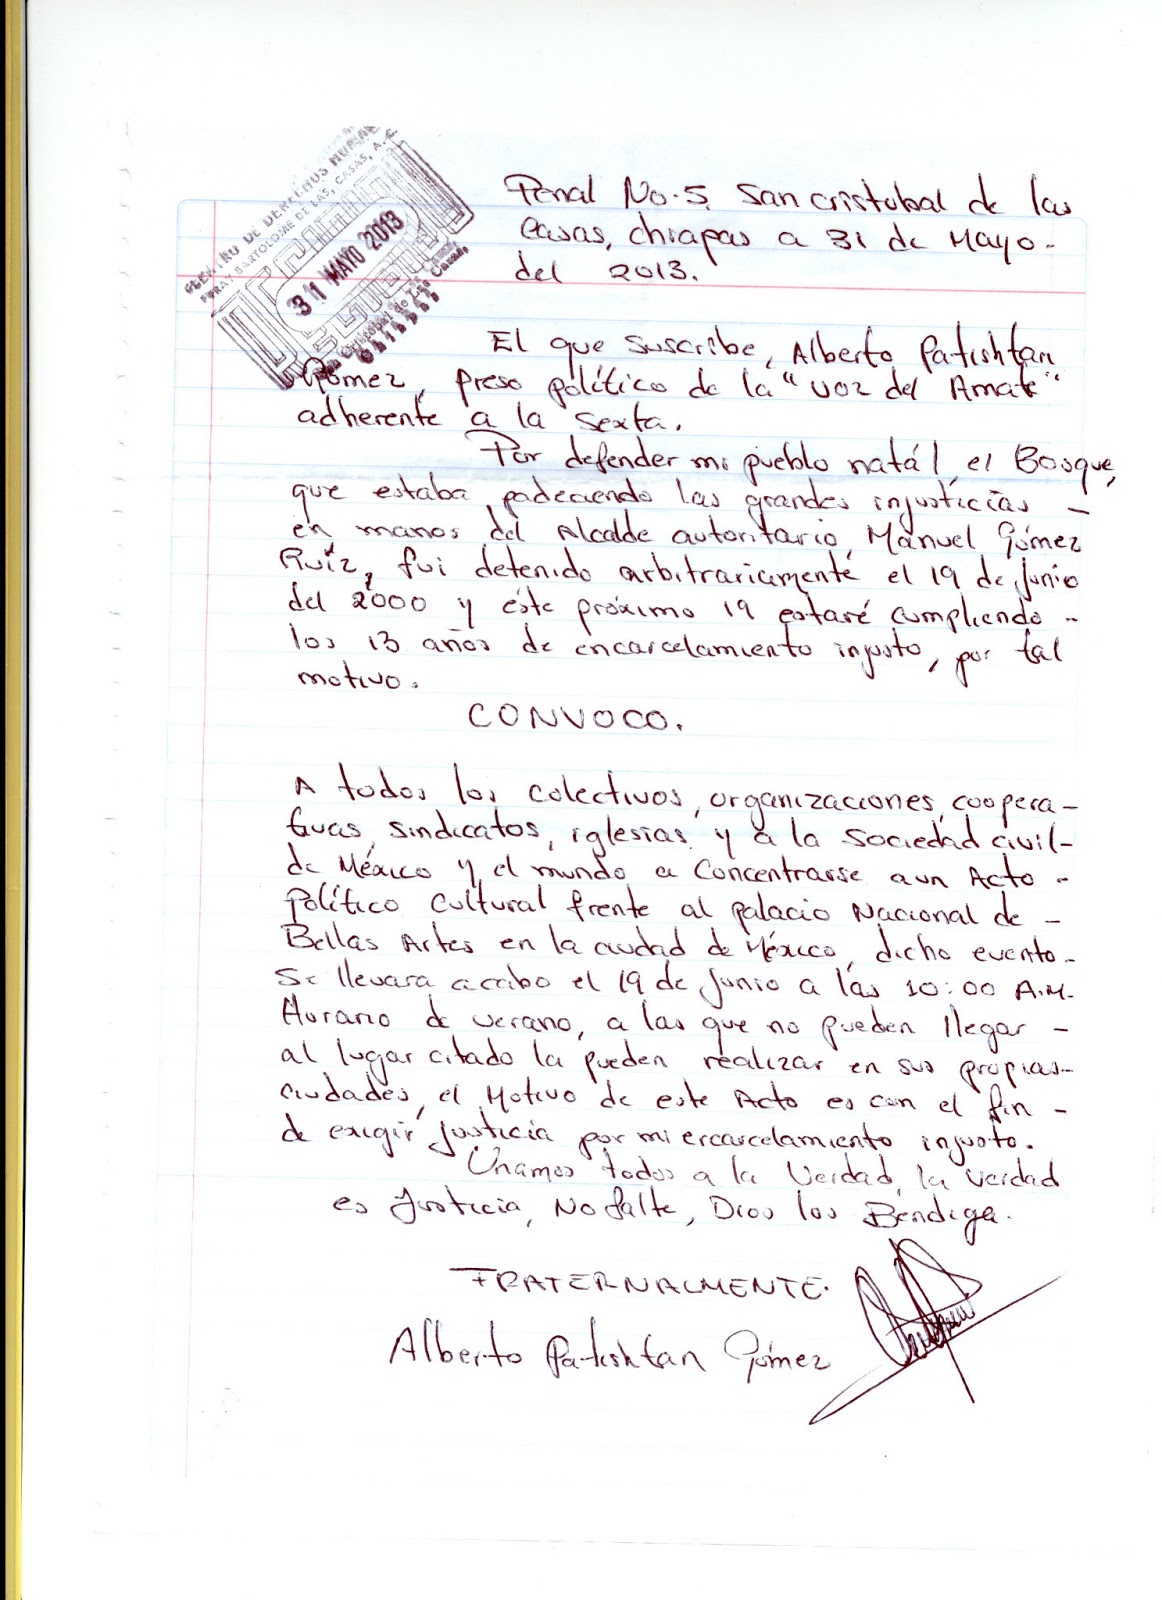 CENTRO DE DERECHOS HUMANOS
FRAY BARTOLOME DE LAS CASAS, A.C.
31 MAYO 2013
Cristobal de Las Casas,
CHIAPAS
Penal No. 5. San cristobal de las
Casas, chiapas a 31 de Mayo -
del 2013.
El que suscribe, Alberto Patishtan
Gómez, preso político de la "voz del Amate"
adherente a la Sexta.
Por defender mi pueblo natál, el Bosque,
que estaba padeciendo las grandes injusticias -
en manos del Alcalde autoritario, Manuel Gómez
Ruíz, fui detenido arbitrariamente el 19 de Junio
del 2000 y éste próximo 19 estaré cumpliendo -
los 13 años de encarcelamiento injusto, por tal
motivo.
CONVOCO.
A todos los colectivos, organizaciones, coopera-
tivas, sindicatos, iglesias, y a la Sociedad civil-
de México y el mundo a concentrarse aun Acto -
Político Cultural frente al palacio Nacional de -
Bellas Artes en la ciudad de México, dicho evento -
Se llevara acabo el 19 de Junio a lás 10:00 A.M.
Horario de verano, a las que no pueden llegar -
al lugar citado la pueden realizar en sus propias-
ciudades, el Motivo de este Acto es con el fin -
de exigir justicia por mi ercarcelamiento injusto.
Unamos todos a la Verdad, la verdad
es Justicia, No falte, Dios los Bendiga.
FRATERNALMENTE.
Alberto Patishtan Gómez